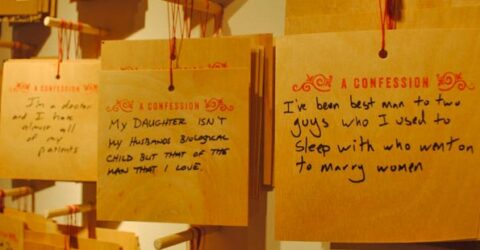 A CONFESSION
I'm a doctor
and I hate
almost all
of my
patients
A CONFESSION
MY DAUGHTER ISN'T
MY HUSBANDS BIOLOGICAL
CHILD BUT THAT OF THE
MAN THAT I LOVE.
A CONFESSION
I've been best man to two
guys who I used to
sleep with who went on
to marry women